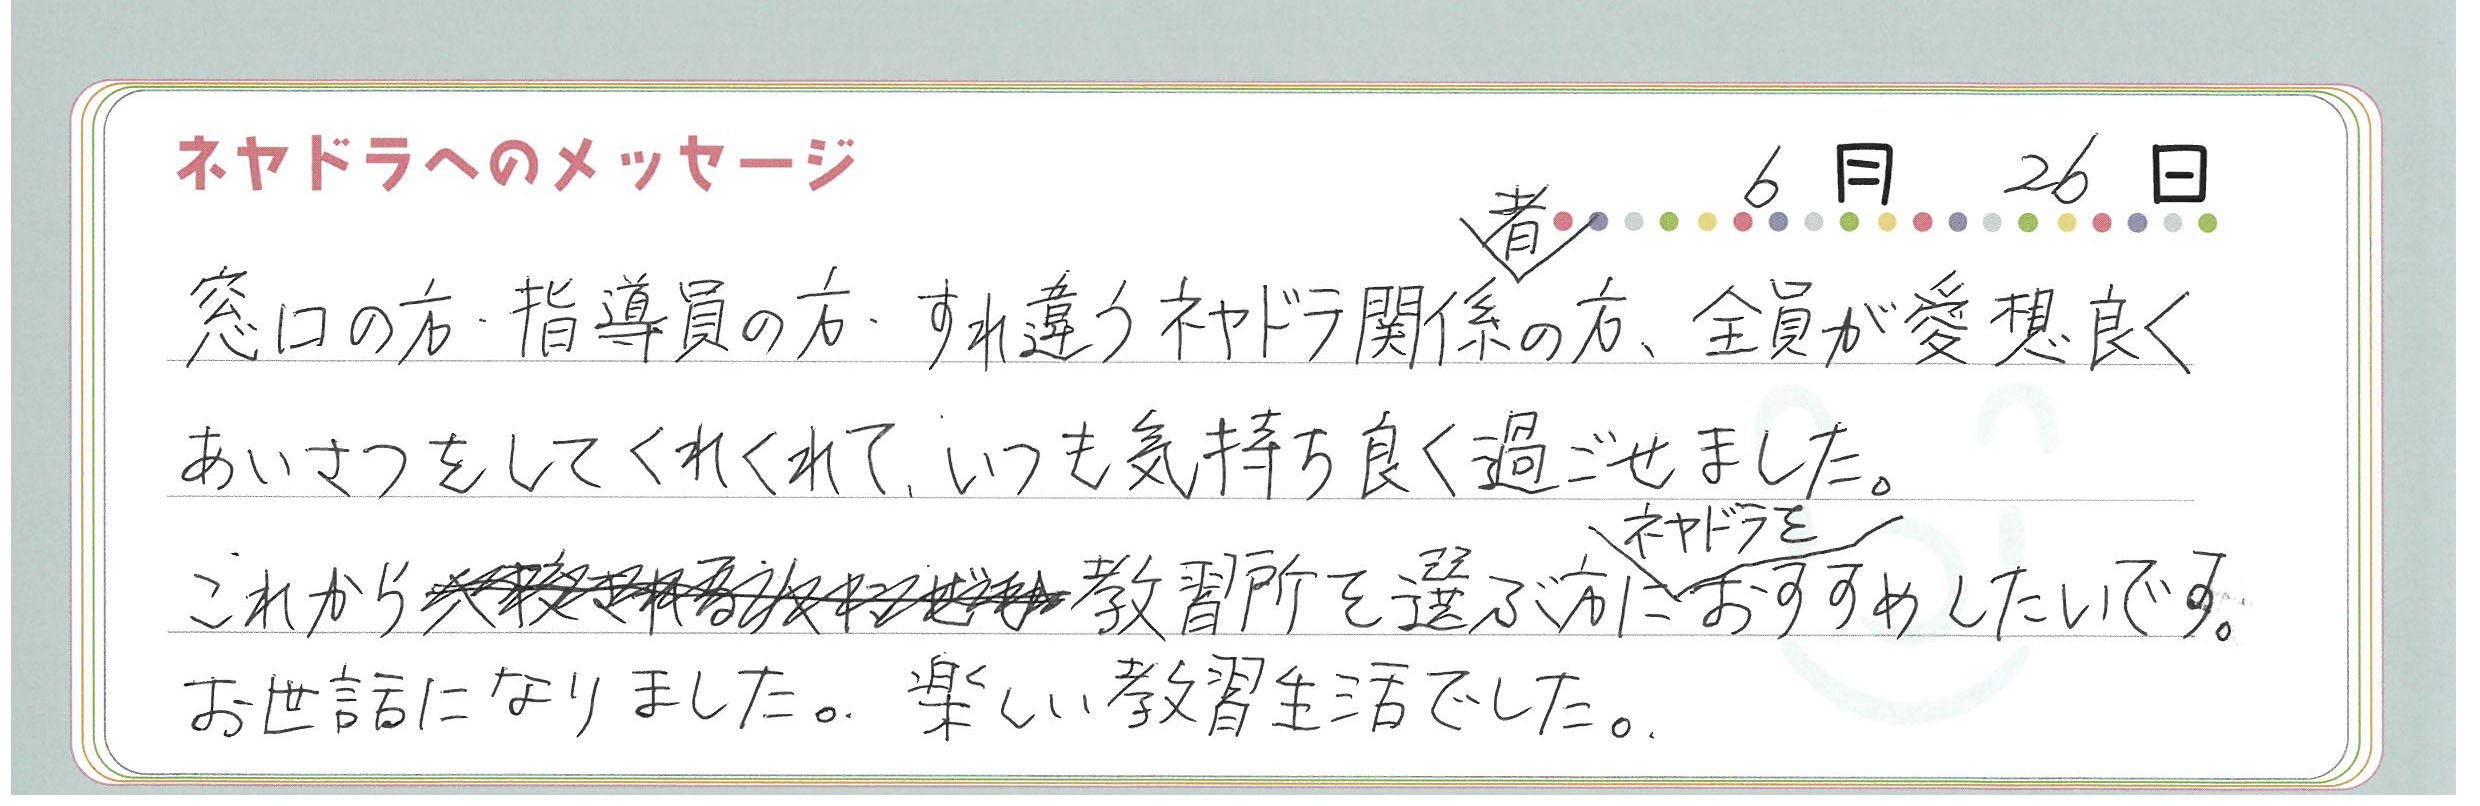 ネヤドラへのメッセージ
6月 26日
窓口の方・指導員の方・すれ違うネヤドラ関係者の方、全員が愛想良く
あいさつをしてくれくれて、いつも気持ち良く過ごせました。
これから教習所を選ぶ方にネヤドラをおすすめしたいです。
お世話になりました。楽しい教習生活でした。